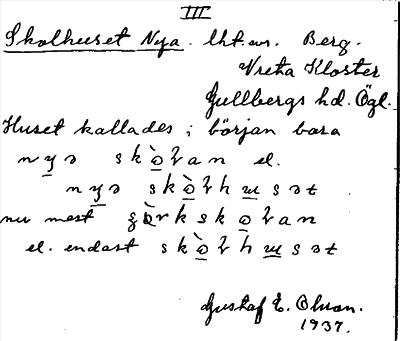 III
Skolhuset Nya. lht. nr. Berg.
Vreta Kloster
Gullbergs hd. Ögl.
Huset kallades i början bara
nyə skò̱ɫan el.
nyə skò̱ɫhu̱sət
nu mest kskɷɫan
el. endast skò̱ɫhu̱sət
Gustaf E. Olson.
1937.